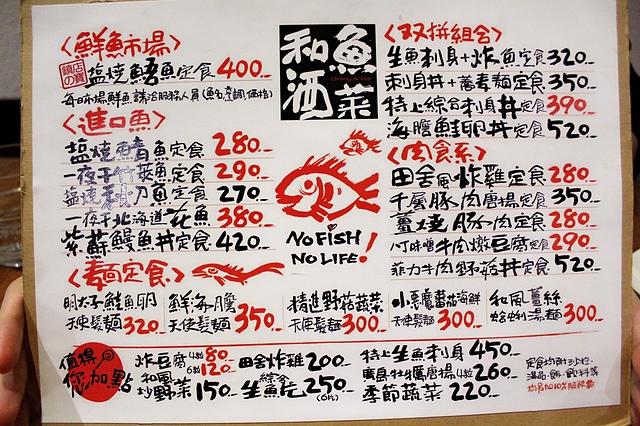 〈鮮魚市場〉
鎮店の寶
塩燒鯣魚定食 400.-
每日市場鮮魚 請洽服務人員(魚名,烹調,價格)
〈進口魚〉
塩燒鯖魚定食 280.-
一夜干竹莢魚定食 290.-
塩燒秋刀魚定食 270.-
一夜干北海道花魚 380.-
紫蘇鰻魚丼定食 420.-
〈麵定食〉
和魚
酒菜
Dining & Bar
NO FISH
NO LIFE!
〈双拼組合〉
生魚刺身+炸魚定食 320.-
刺身丼+蕎麦麵定食 350.-
特上綜合刺身丼定食 390.-
海膽鮭卵丼定食 520.-
〈肉食系〉
田舍風炸雞定食 280.-
千層豚肉唐揚定食 350.-
薑燒豚肉定食 280.-
八丁味噌牛肉燉豆腐定食 290.-
菲力牛肉野菇丼定食 520.-
明太子鮭魚卵
天使髮麵 320.-
鮮海膽
天使髮麵 350.-
精進野菇蔬菜
天使髮麵 300.-
小惡魔蕃茄海鮮
天使髮麵 300.-
和風薑絲
蛤蜊湯麵 300.-
值得
您加點
炸豆腐 4塊80 6塊120
和風炒野菜 150.-
田舍炸雞 200.-
綜合生魚片 250.- (6片)
特上生魚刺身 450.-
廣島牡蠣唐揚 4粒 260.-
季節蔬菜 220.-
定食均附沙拉,
湯品,飯,飲料等
均另加10%服務費